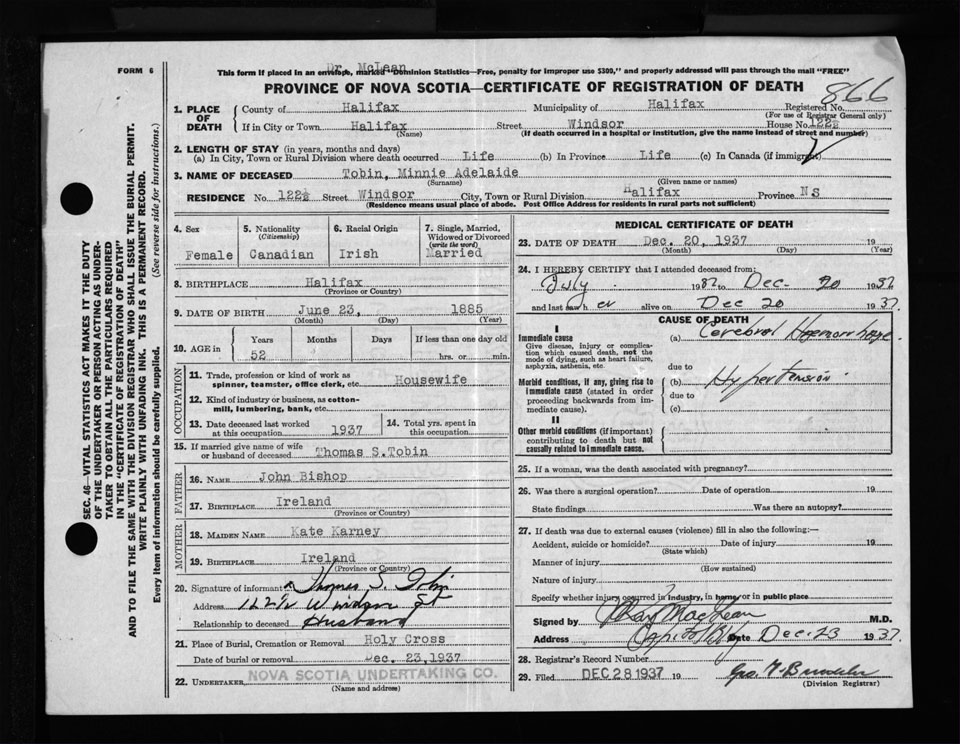 Dr. McLean
FORM 6
This form if placed in an envelope, marked "Dominion Statistics—Free, penalty for improper use $300," and properly addressed will pass through the mail "FREE"
PROVINCE OF NOVA SCOTIA—CERTIFICATE OF REGISTRATION OF DEATH
866
1. PLACE OF DEATH
County of Halifax Municipality of Halifax Registered No.
(For use of Registrar General only)
If in City or Town Halifax Street Windsor House No. 122½
(Name) (If death occurred in a hospital or institution, give the name instead of street and number)
2. LENGTH OF STAY (in years, months and days)
(a) In City, Town or Rural Division where death occurred Life (b) In Province Life (c) In Canada (if immigrant)
3. NAME OF DECEASED Tobin, Minnie Adelaide
(Surname) (Given name or names)
RESIDENCE No. 122½ Street Windsor City, Town or Rural Division Halifax Province NS
(Residence means usual place of abode. Post Office Address for residents in rural parts not sufficient)
4. Sex
Female
5. Nationality
(Citizenship)
Canadian
6. Racial Origin
Irish
7. Single, Married, Widowed or Divorced
(write the word)
Married
8. BIRTHPLACE Halifax
(Province or Country)
9. DATE OF BIRTH June 23, 1885
(Month) (Day) (Year)
10. AGE in
Years Months Days If less than one day old
52 hrs. or min.
OCCUPATION
11. Trade, profession or kind of work as
spinner, teamster, office clerk, etc. Housewife
12. Kind of industry or business, as cotton-
mill, lumbering, bank, etc.
13. Date deceased last worked
at this occupation 1937
14. Total yrs. spent in
this occupation
15. If married give name of wife
or husband of deceased Thomas S. Tobin
FATHER
16. NAME John Bishop
17. BIRTHPLACE Ireland
(Province or Country)
MOTHER
18. MAIDEN NAME Kate Karney
19. BIRTHPLACE Ireland
(Province or Country)
20. Signature of informant Thomas S. Tobin
Address 122½ Windsor St
Relationship to deceased Husband
21. Place of Burial, Cremation or Removal Holy Cross
Date of burial or removal Dec. 23, 1937
22. UNDERTAKER NOVA SCOTIA UNDERTAKING CO.
(Name and address)
MEDICAL CERTIFICATE OF DEATH
23. DATE OF DEATH Dec. 20, 1937 19
(Month) (Day) (Year)
24. I HEREBY CERTIFY that I attended deceased from:
July 1937 to Dec. 20 1937
and last saw her alive on Dec 20 1937.
CAUSE OF DEATH
I
Immediate cause
Give disease, injury or complica-
tion which caused death, not the
mode of dying, such as heart failure,
asphyxia, asthenia, etc.
(a) Cerebral Haemorrhage
due to
Morbid conditions, if any, giving rise to
immediate cause (stated in order
proceeding backwards from im-
mediate cause).
(b) Hypertension
due to
(c)
II
Other morbid conditions (if important)
contributing to death but not
causally related to immediate cause.
25. If a woman, was the death associated with pregnancy?
26. Was there a surgical operation? Date of operation 19
State findings Was there an autopsy?
27. If death was due to external causes (violence) fill in also the following:—
Accident, suicide or homicide? Date of injury 19
(State which)
Manner of injury
(How sustained)
Nature of injury
Specify whether injury occurred in industry, in home or in public place
Signed by MacLean M.D.
Address Date Dec. 23 1937.
28. Registrar's Record Number
29. Filed DEC 28 1937 19
(Division Registrar)
SEC. 46—VITAL STATISTICS ACT MAKES IT THE DUTY
OF THE UNDERTAKER OR PERSON ACTING AS UNDER-
TAKER TO OBTAIN ALL THE PARTICULARS REQUIRED
IN THE "CERTIFICATE OF REGISTRATION OF DEATH"
AND TO FILE THE SAME WITH THE DIVISION REGISTRAR WHO SHALL ISSUE THE BURIAL PERMIT.
WRITE PLAINLY WITH UNFADING INK. THIS IS A PERMANENT RECORD.
Every item of information should be carefully supplied. (See reverse side for instructions.)